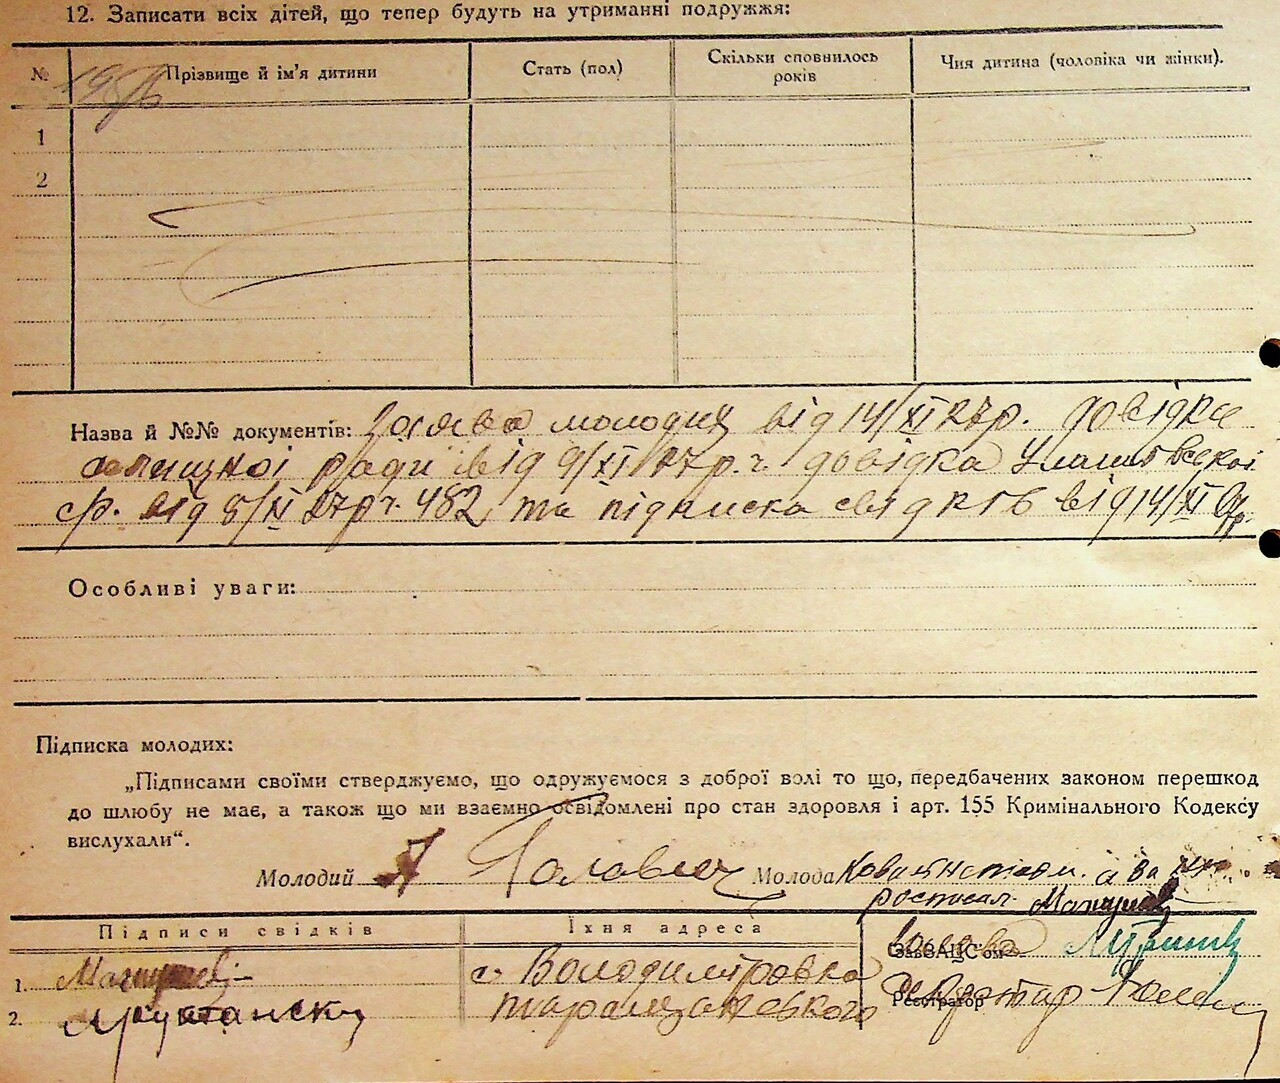 12. Записати всіх дітей, що тепер будуть на утриманні подружжя:
№ Прізвище й ім'я дитини Стать (пол) Скільки сповнилось років Чия дитина (чоловіка чи жінки).
1
2
Назва й №№ документів: Заява молодих від 14/XI 27р. довідка
селищної ради від 9/XI 27р. ч. довідка
с/р. від 8/XI 27р ч. 482 та підписка свідків від 14/XI 27р.
Особливі уваги:
Підписка молодих:
„Підписами своїми стверджуємо, що одружуємося з доброї волі то що, передбачених законом перешкод
до шлюбу не має, а також що ми взаємно освідомлені про стан здоровля і арт. 155 Кримінального Кодексу
вислухали“.
Молодий Молода
Підписи свідків Їхня адреса
ЗавЗАЦС'ом Голова
1. с Володимировка
Реєстратор Секретар
2. Таращанського